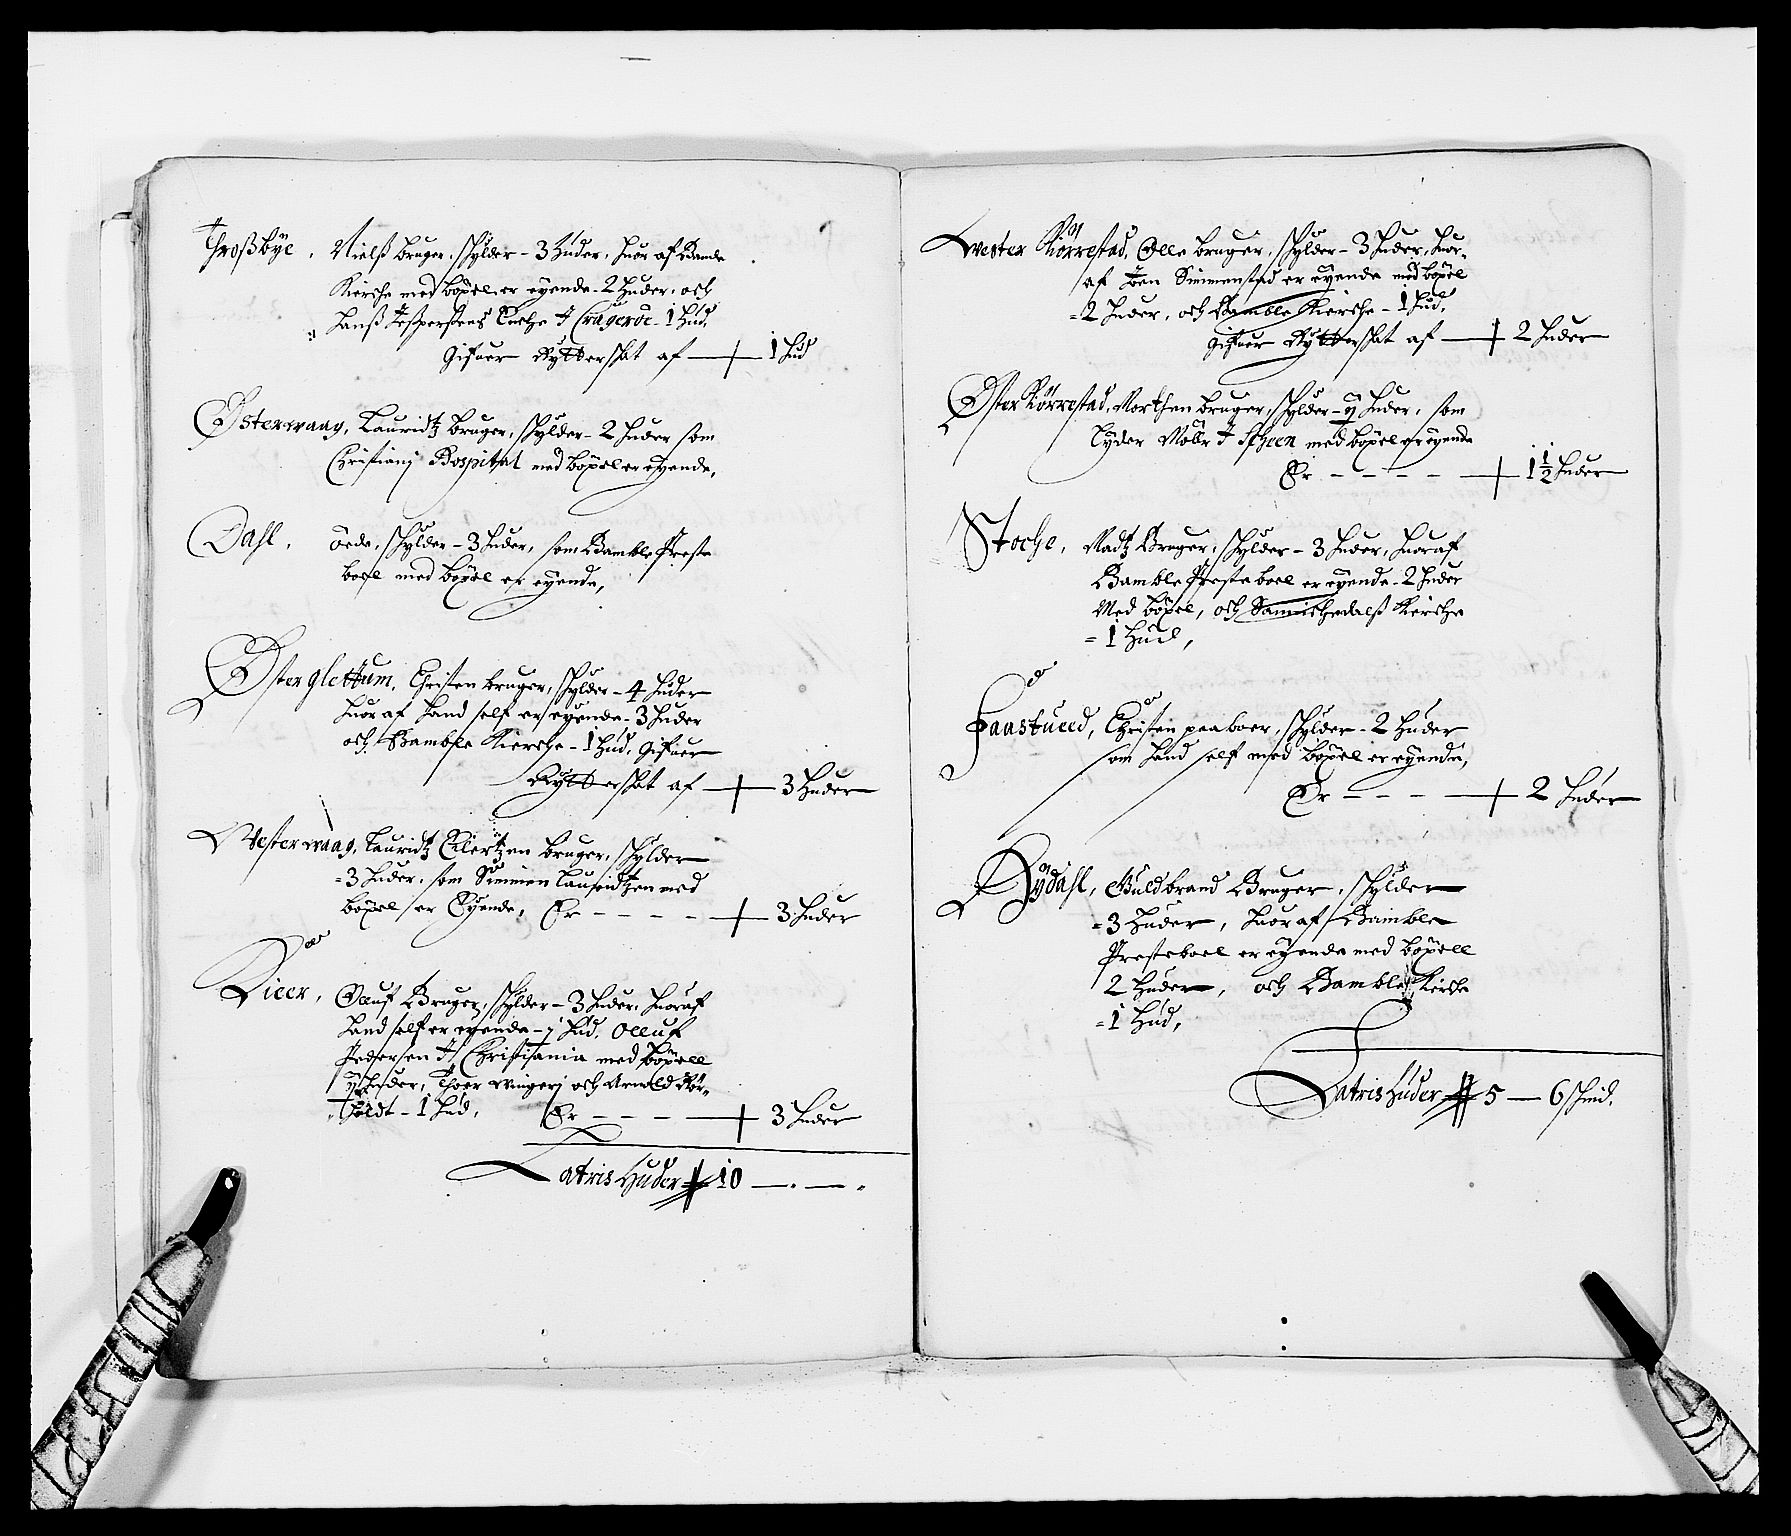 Throßbÿe, Nielß bruger, skÿlder – 3 huder, huor af Bamle
Kierche med böxel er eyende – 2 huder, och
Hanß Jespersens Enche J Crageröe – 1 hud,
Gifuer Rÿtterskat af — 1 hud
Österwaag, Lauridtz bruger, skÿlder – 2 huder som
Christianj Hospital med böxel er eÿende,
Dahl, öede, skÿlder – 3 huder, som Bamble Preste
boel med böxel er eyende,
Øster glettum, Christen bruger, skÿlder – 4 huder
huor af hand self er eyende – 3 huder
och Bamble Kierche – 1 hud, Gifuer
Rÿtterskat af — 3 huder
Wester waag, Lauridtz Eilertzen bruger, skÿlder
= 3 huder, som Simmen Lauridtzen med
böxel er Eyende, Er – – – – — 3 huder
Oluf Bruger, skÿlder – 3 huder, huoraf
hand self er eyende – 1 hud, Olluf
Pedersen J Christiania med böxell
huder, Thoer wingerj och Arnold Kör=
holdt – 1 hud, Er – – – — 3 huder
Latris Huder 10 — . — .
Wester Kiörrestad, Olle bruger, skÿlder – 3 huder, huor=
af Joen Simmenstad er eyende med böxel
= 2 huder, och Bamble Kierche – 1 hud,
gifuer Rÿtterskat af — 2 huder
Öster Kiörrestad, Morthen bruger, skÿlder – huder, som
Lyder Möller J Scheen med böxel er eyende
Er – – – – — 1 1/2 huder
Stoche, Madtz Bruger, skÿlder – 3 huder, huoraf
Bamble Presteboel er eyende – 2 huder
Med böxel, och Sannichedalß Kierche
= 1 hud,
Faastued, Christen paaboer, skÿlder – 2 huder
som hand self med böxel er eyende,
Er – – – — 2 huder
Dÿdahl, Guldbrand Bruger, skÿlder
= 3 huder, huor af Bamble
Presteboel er eyende med böxell
2 huder, och Bamble Kirche
= 1 hud,
Latris huder 5 — 6 skind.